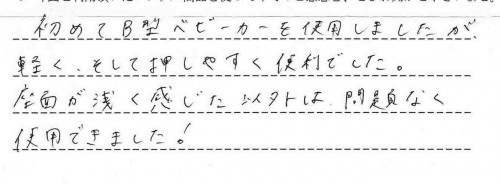 初めてB型ベビーカーを使用しましたが、
軽く、そして押しやすく便利でした。
座面が浅く感じた以外は、問題なく
使用できました!